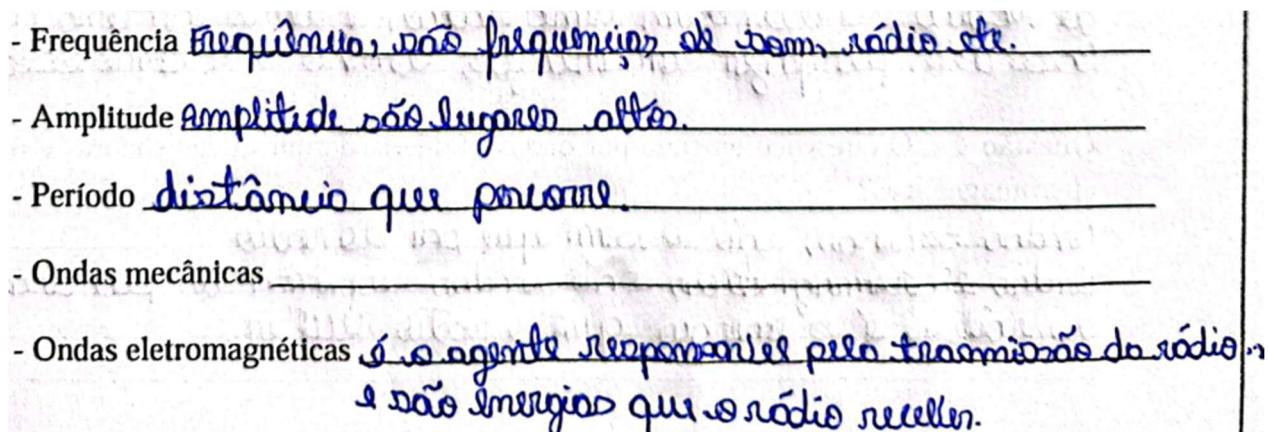 - Frequência Frequência, são frequências de som, rádio etc.
- Amplitude Amplitide são lugares altos.
- Período distância que percorre.
- Ondas mecânicas
- Ondas eletromagnéticas é o agente responsavel pela trasmissão do rádio.,
e são energias que o rádio receber.